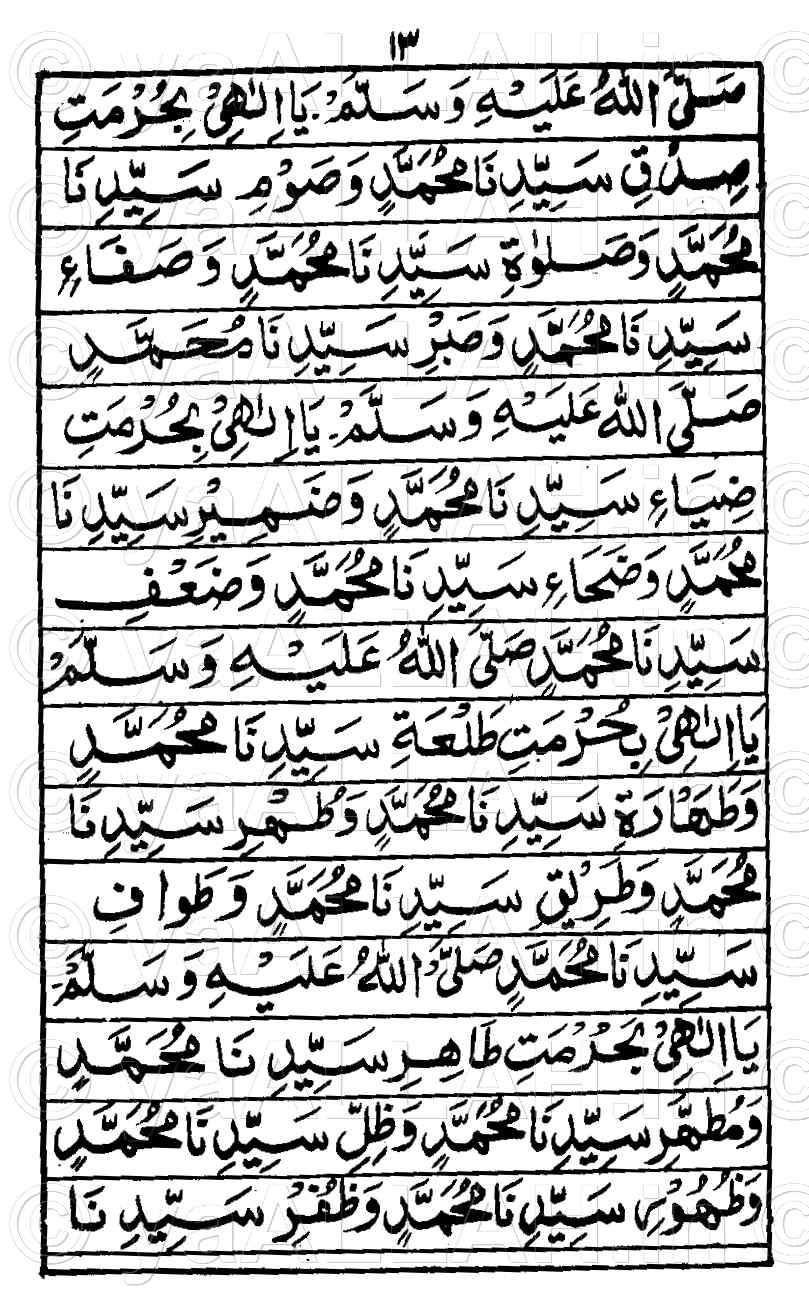 ١٣
صَلَّى اللّٰهُ عَلَيْهِ وَسَلَّمْ۔ يَا اِلٰهِىْ بِحُرْمَتِ
صِدْقِ سَيِّدِنَا مُحَمَّدٍ وَصَوْمِ سَيِّدِنَا
مُحَمَّدٍ وَصَلٰوةِ سَيِّدِنَا مُحَمَّدٍ وَصَفَاءِ
سَيِّدِنَا مُحَمَّدٍ وَصَبْرِ سَيِّدِنَا مُحَمَّدٍ
صَلَّى اللّٰهُ عَلَيْهِ وَسَلَّمْ۔ يَا اِلٰهِىْ بِحُرْمَتِ
ضِيَاءِ سَيِّدِنَا مُحَمَّدٍ وَضَمِيْرِ سَيِّدِنَا
مُحَمَّدٍ وَضَحَاءِ سَيِّدِنَا مُحَمَّدٍ وَضَعْفِ
سَيِّدِنَا مُحَمَّدٍ صَلَّى اللّٰهُ عَلَيْهِ وَسَلَّمْ
يَا اِلٰهِىْ بِحُرْمَتِ طَلْعَةِ سَيِّدِنَا مُحَمَّدٍ
وَطَهَارَةِ سَيِّدِنَا مُحَمَّدٍ وَطُهْرِ سَيِّدِنَا
مُحَمَّدٍ وَطَرِيْقِ سَيِّدِنَا مُحَمَّدٍ وَطَوافِ
سَيِّدِنَا مُحَمَّدٍ صَلَّى اللّٰهُ عَلَيْهِ وَسَلَّمْ۔
يَا اِلٰهِىْ بِحُرْمَتِ طَاهِرِ سَيِّدِنَا مُحَمَّدٍ
وَمُطَهَّرِ سَيِّدِنَا مُحَمَّدٍ وَظِلِّ سَيِّدِنَا مُحَمَّدٍ
وَظُهُوْرِ سَيِّدِنَا مُحَمَّدٍ وَظَفْرِ سَيِّدِنَا
© yaALLAH.in ©